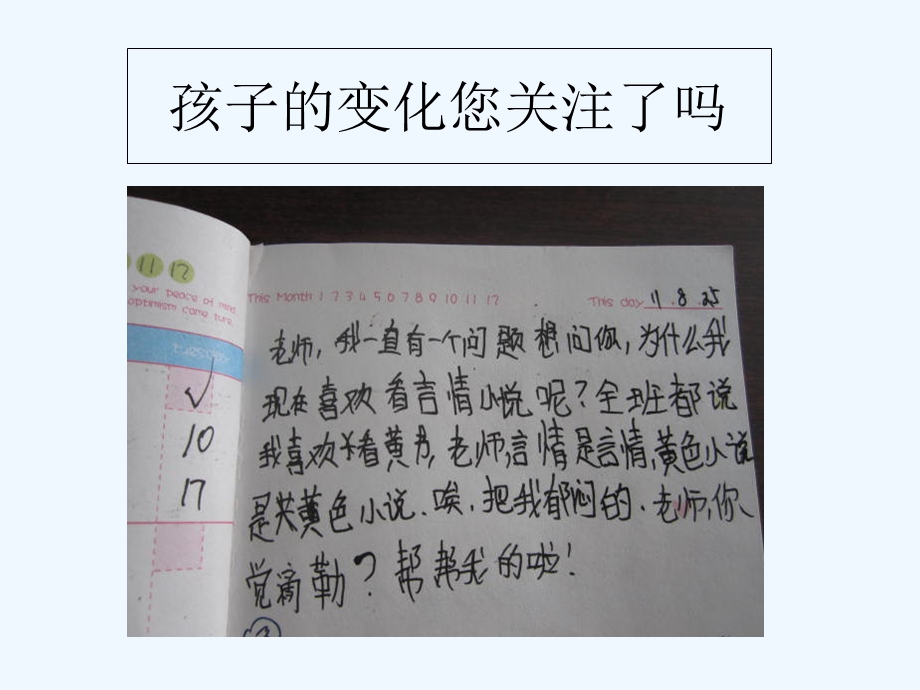 孩子的变化您关注了吗
11 12
your peace of mind
optimism came ture.
10
17
This Month 1 2 3 4 5 6 7 8 9 10 11 12
This day 11.8.25
老师,我一直有一个问题想问你,为什么我
现在喜欢看言情小说呢?全班都说
我喜欢看黄书,老师,言情是言情,黄色小说
是黄色小说.唉,把我郁闷的.老师,你、
觉滴勒?帮帮我的啦!